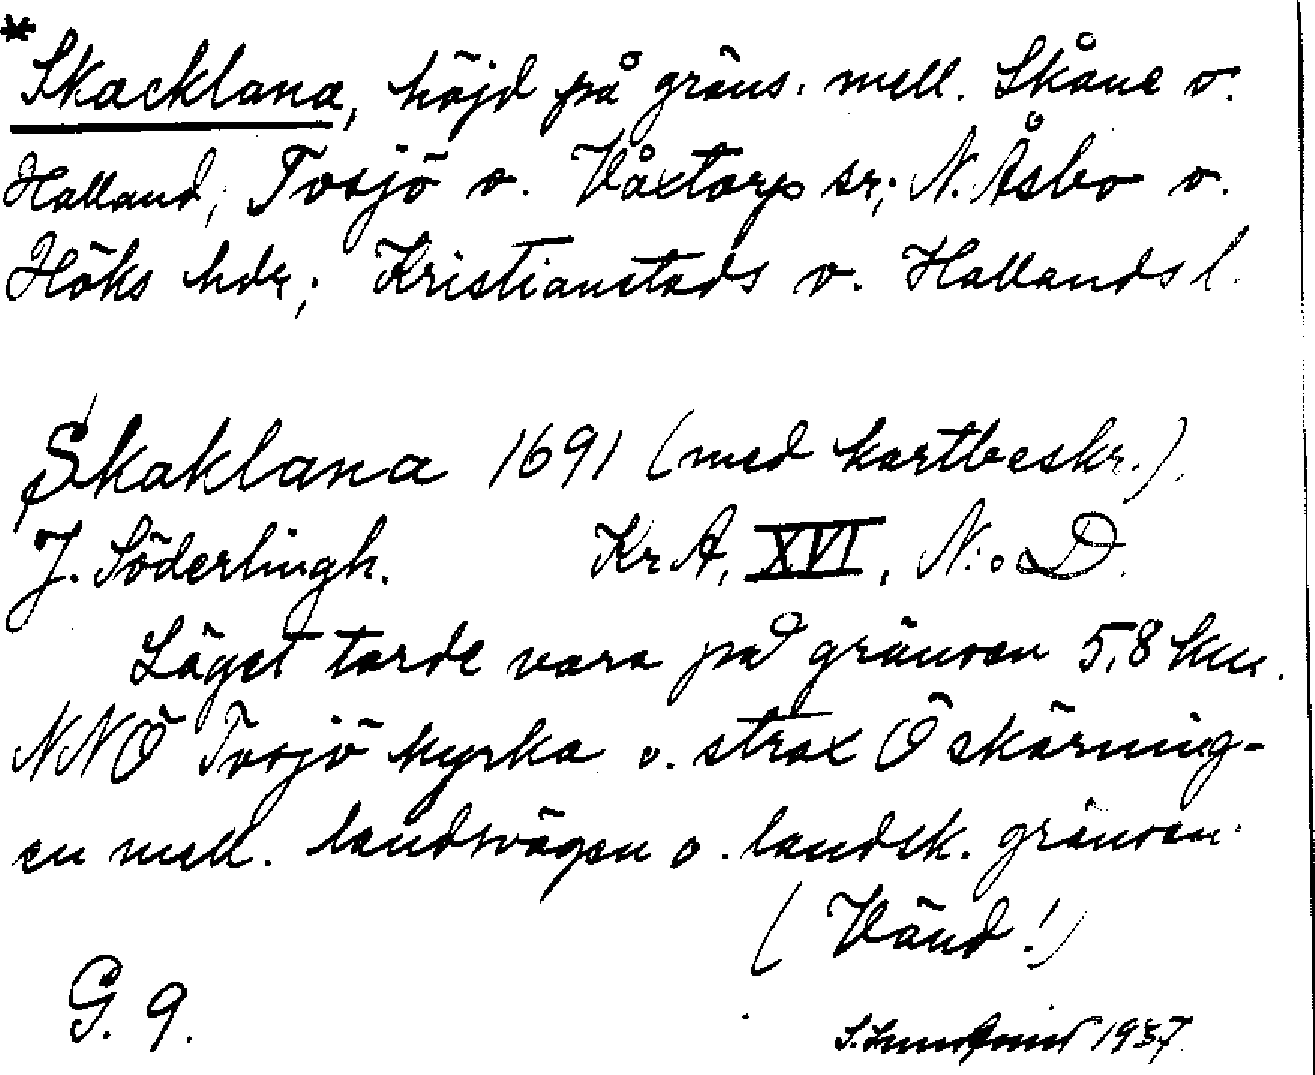 *Skacklana, höjd på gräns. mell. Skåne o.
Halland, Tosjö o. Våxtorp sr; N. Åsbo o.
Höks hdr; Kristianstads o. Hallands l.
Skaklana 1691 (med kartbeskr.).
J. Söderlingh. Kr A, XVI, N:o D.
Läget torde vara på gränsen 5,8 km.
NNÖ Tosjö kyrka o. strax Ö skärning-
en mell. landsvägen o. landsk. gränsen.
(Vänd!)
G. 9.
S. 1937.